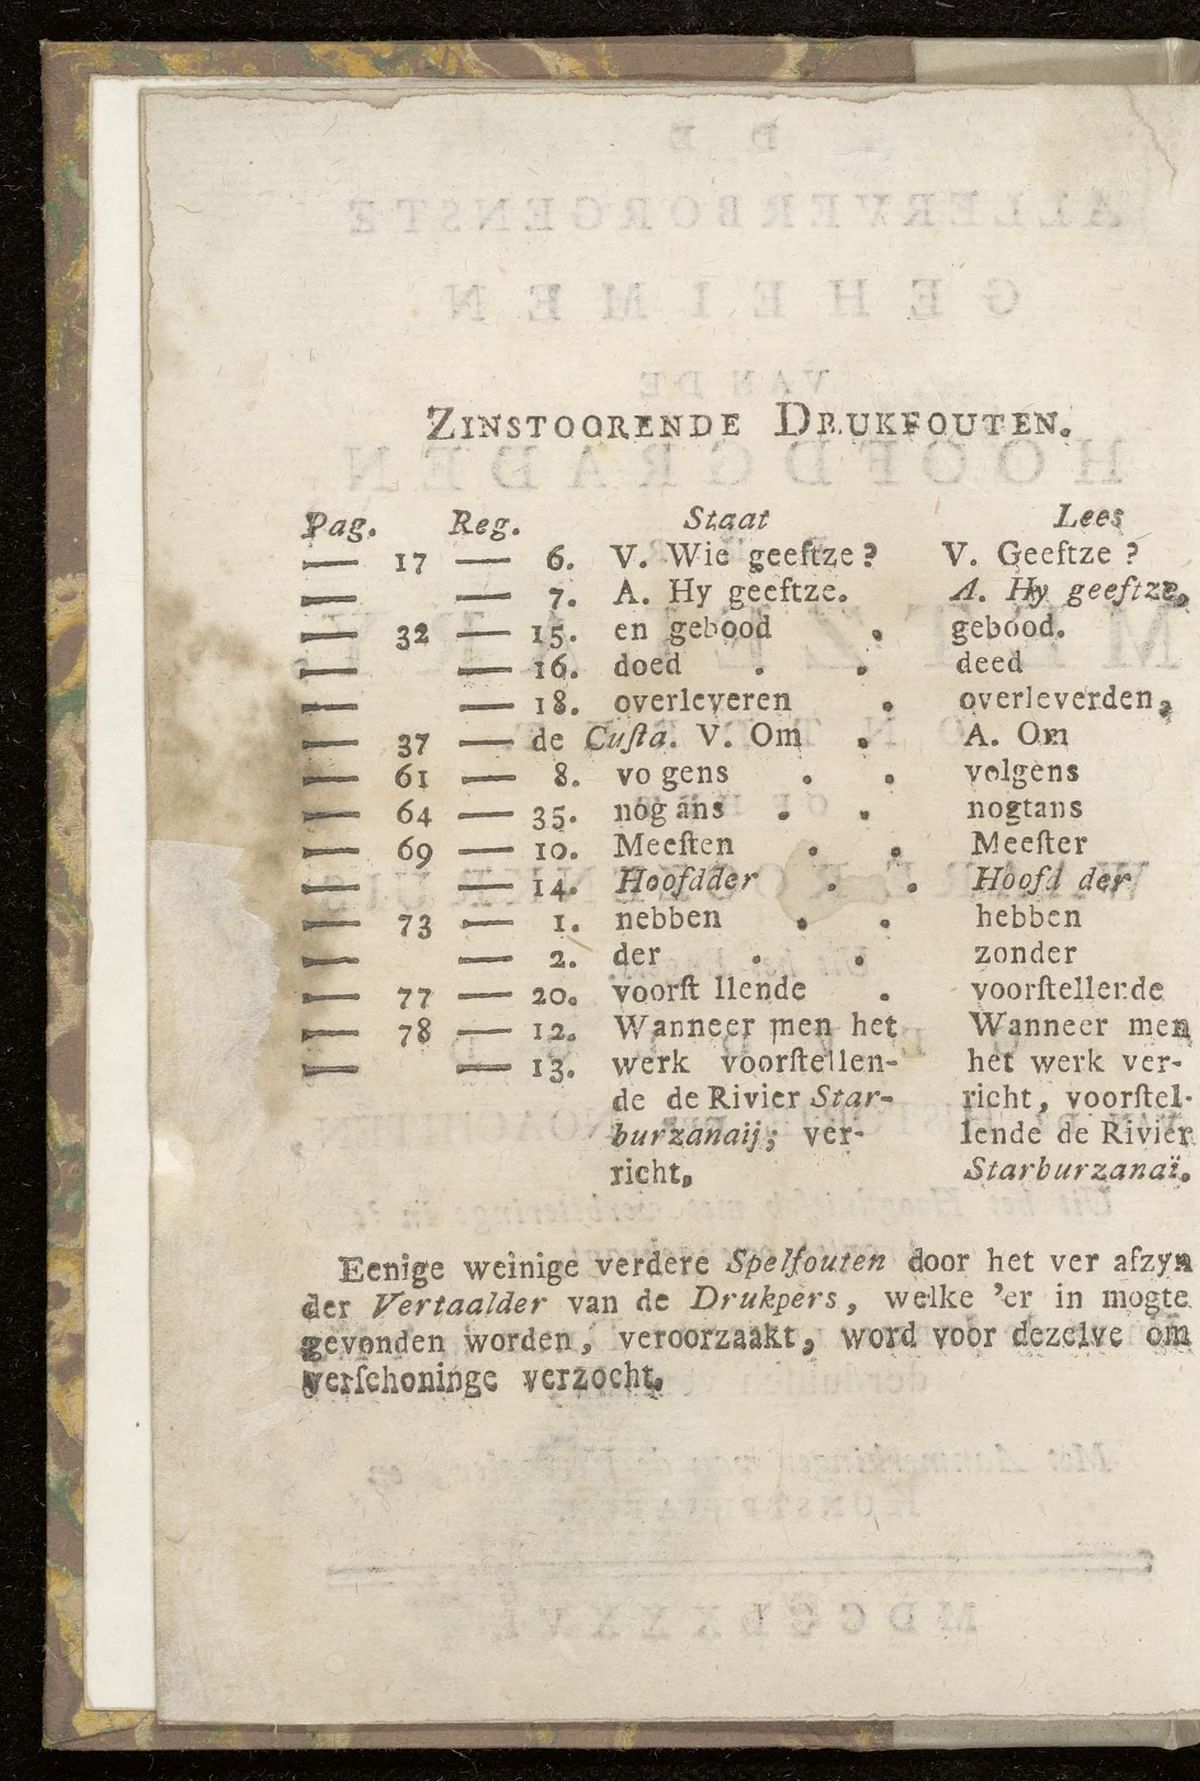 ZINSTOORENDE DRUKFOUTEN.
Pag. Reg. Staat Lees
— 17 — 6. V. Wie geeftze? V. Geeftze?
— — 7. A. Hy geeftze. A. Hy geeftze.
— 32 — 15. en gebood . gebood.
— — 16. doed . . deed
— — 18. overleveren . overleverden,
— 37 — de Cuſta. V. Om . A. Om
— 61 — 8. vo gens . . volgens
— 64 — 35. nog ans . . nogtans
— 69 — 10. Meeſten . . Meeſter
— — 14. Hoofdder . . Hoofd der
— 73 — 1. nebben . . hebben
— — 2. der . . zonder
— 77 — 20. voorſt llende . voorſtellende
— 78 — 12. Wanneer men het Wanneer men
— — 13. werk voorſtellen- het werk ver-
de de Rivier Star- richt, voorſtel-
burzanaij; ver- lende de Rivier
richt, Starburzanaï.
Eenige weinige verdere Spelfouten door het ver afzyn
der Vertaalder van de Drukpers, welke 'er in mogte
gevonden worden, veroorzaakt, word voor dezelve om
verſchoninge verzocht.